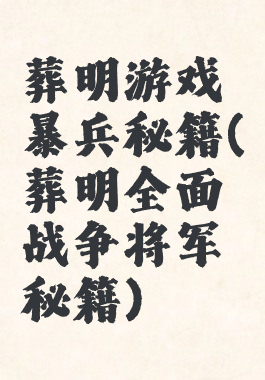 葬明游戏
暴兵秘籍(
葬明全面
战争将军
秘籍)